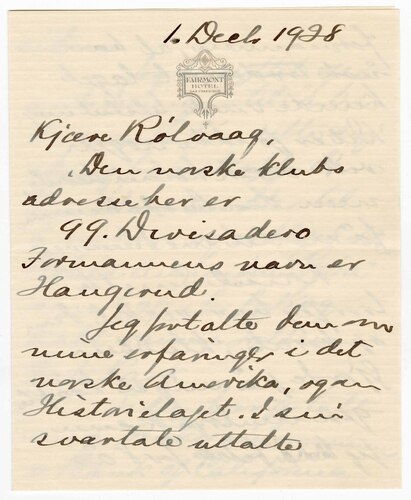 1. Decb. 1928
FAIRMONT
HOTEL
SAN FRANCISCO
Kjære Rölvaag,
Den norske klubs
adresse her er
99. Divisadero
Formannens navn er
Haugerud.
Jeg fortalte dem om
mine erfaringer i det
norske Amerika, og om
Historielaget. I sin
svartale uttalte